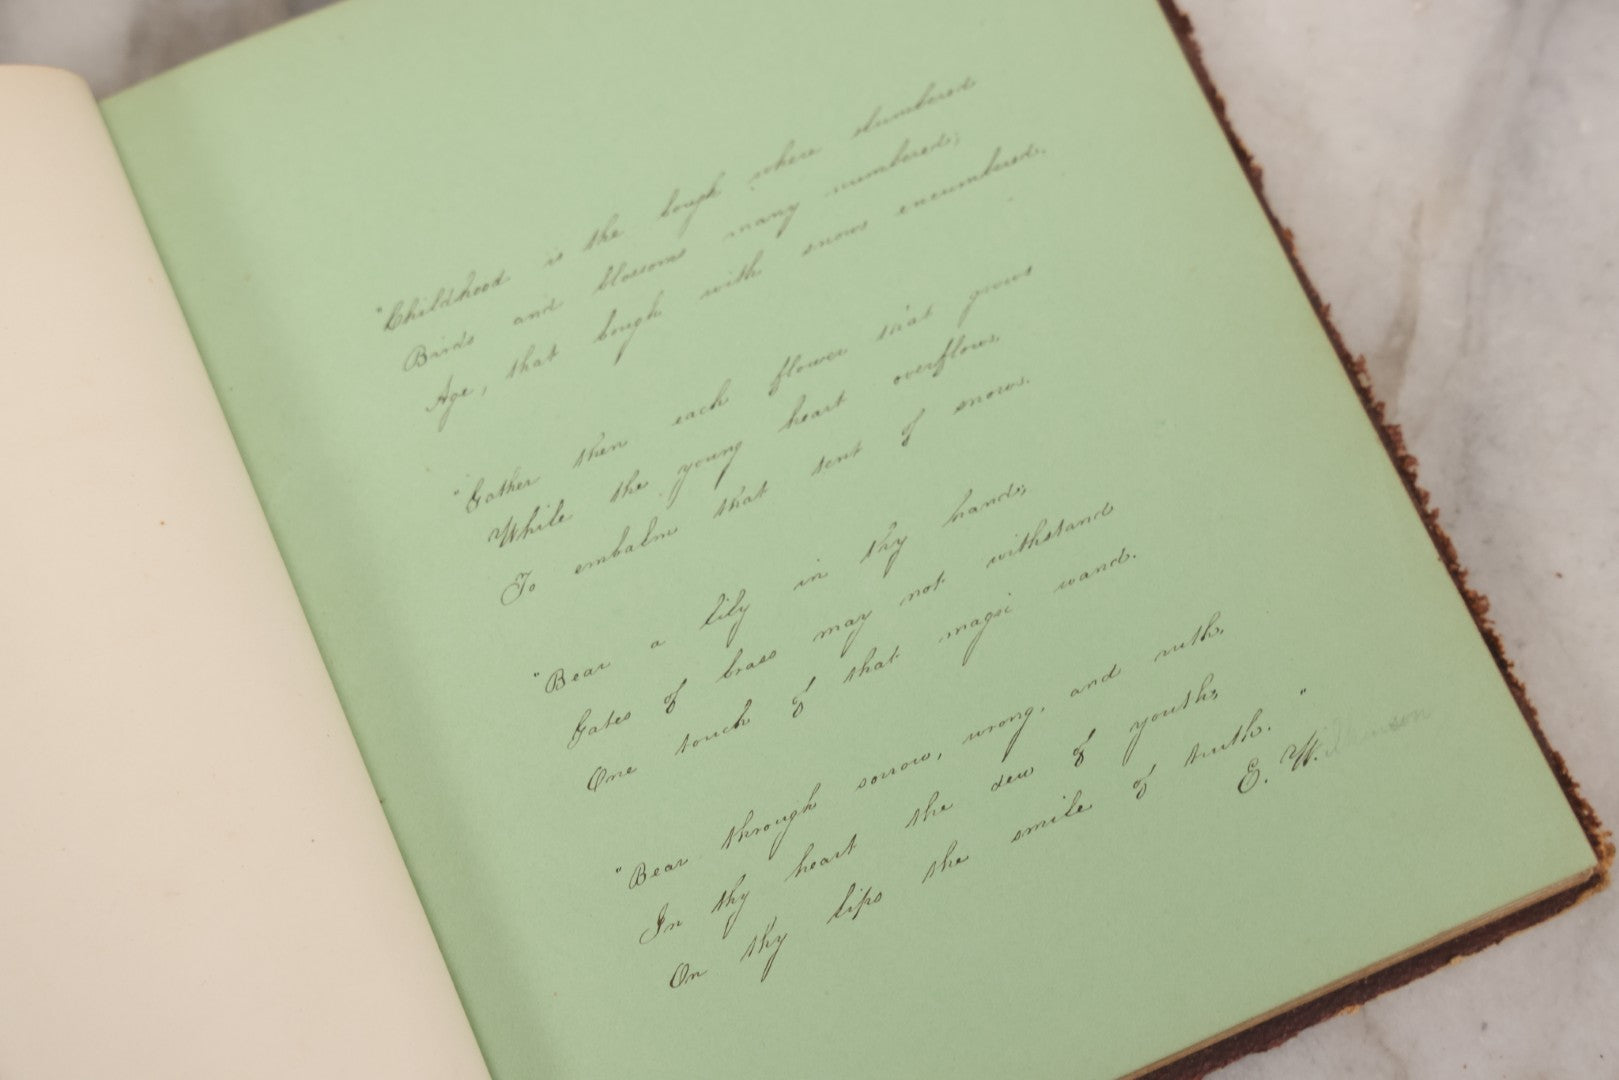 "Childhood is the bough where slumbered
Birds and blossoms many numbered;
Age, that bough with snows encumbered.
"Gather then each flower that grows
While the young heart overflows,
To embalm that tent of snows.
"Bear a lily in thy hand;
Gates of brass may not withstand
One touch of that magic wand.
"Bear through sorrow, wrong, and ruth,
In thy heart the dew of youth;
On thy lips the smile of truth."
E. Wilkinson